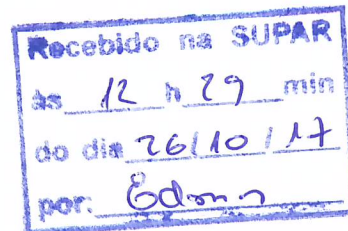 Recebido na SUPAR
às 12 h 29 min
do dia 26/10/17
por: Edson